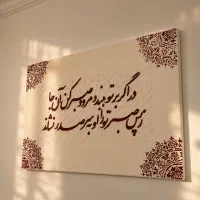 در اگر بر تو ببندد مرو و صبر کن آن جا
ز پس صبر تو را او به سر صدر نشاند